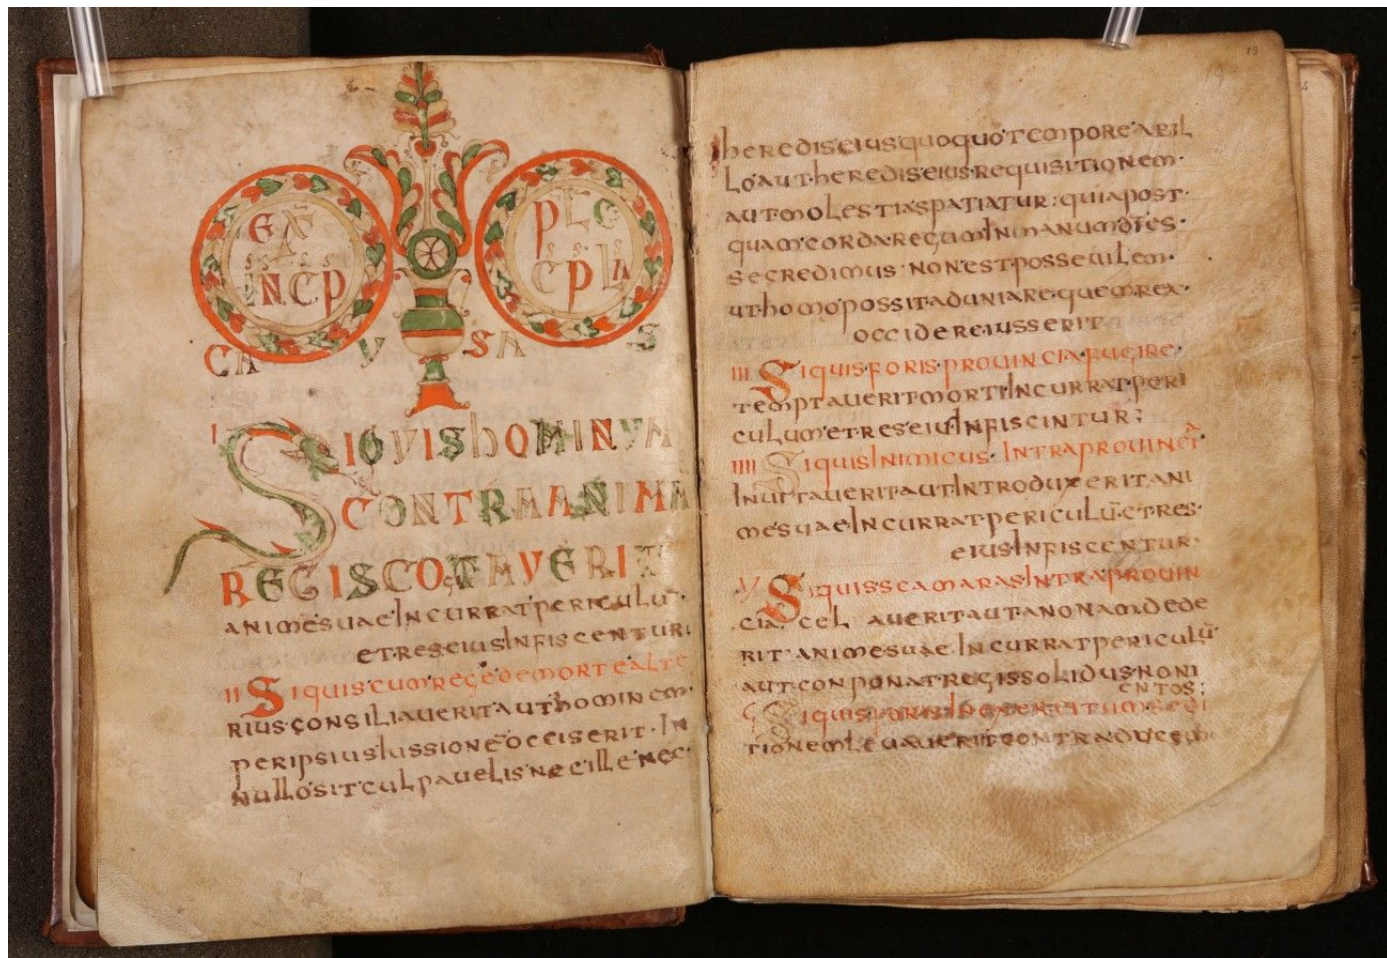 CAVSAS
I SIQVIS hOMINVM
CONTRA ANIMA
REGIS COGITAVERIT
animes uae incurrat periculū·
et res eius infiscentur·
II Siquis cum rege de morte alte
rius consiliauerit aut hominem·
per ipsius iussionē occiserit· in
nullo sit culpauelis nec ille nec·
heredis eius quoquo tempore ab il
lo aut heredis eius requisitionem·
aut molestias patiatur: quia post
quam corda regum in manum dī es
se credimus· non est posseuilem·
ut homo possit aduniare quem rex·
occidere iusserit
III Siquis foris prouincia fugire·
temptauerit morti incurrat peri
culum et res eius infiscintur;
IIII Siquis inimicus intra prouinciā
inuitauerit aut introduxerit ani
mes uae incurrat periculū et res·
eius infiscentur·
V Siquis scamaras intra prouin
cia· cel auerit aut anonam dede
rit· animes uae incurrat periculū
aut conponat regis solidus noni
entos;
Siquis foris in exercitum sedi
tionem leuauerit contra ducem
19